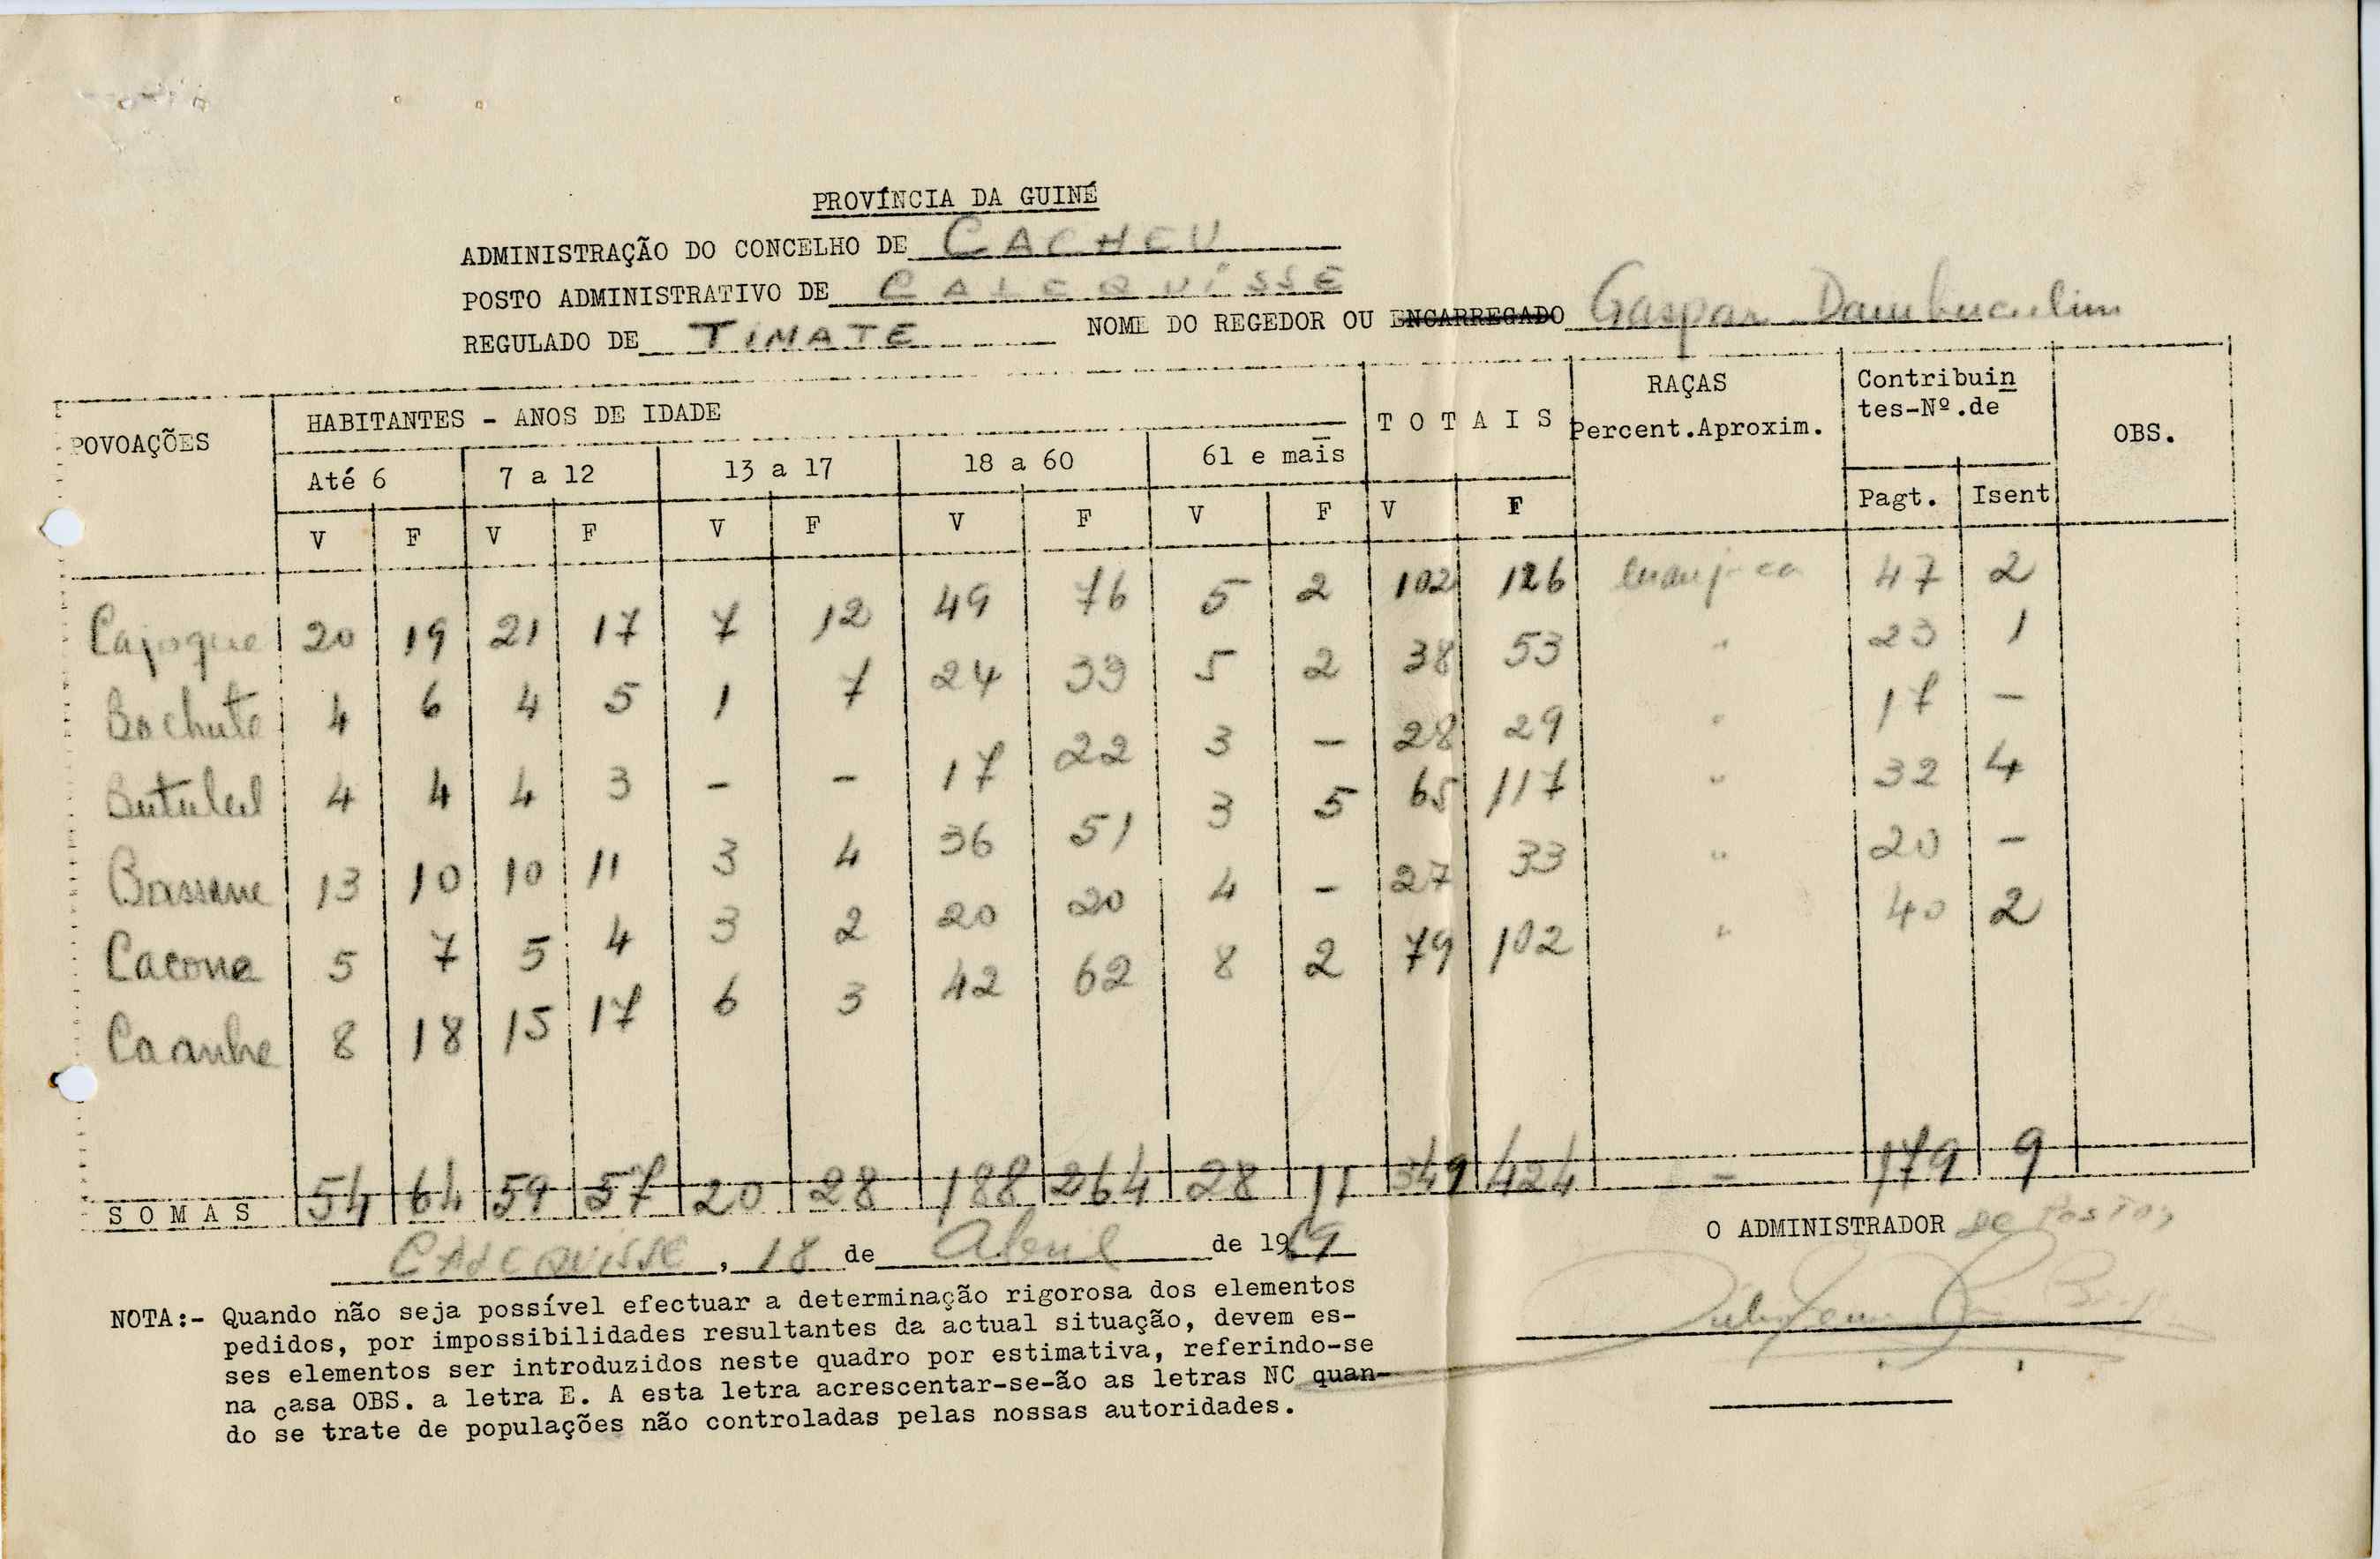 PROVÍNCIA DA GUINÉ
ADMINISTRAÇÃO DO CONCELHO DE CACHEU
POSTO ADMINISTRATIVO DE CALEQUISSE
REGULADO DE TIMATE NOME DO REGEDOR OU ENCARREGADO Gaspar
POVOAÇÕES HABITANTES - ANOS DE IDADE T O T A I S RAÇAS Percent.Aproxim. Contribuin
tes-Nº.de OBS.
Até 6 7 a 12 13 a 17 18 a 60 61 e mais Pagt. Isent
V F V F V F V F V F V F
Cajoque 20 19 21 17 7 12 49 76 5 2 102 126 manjaca 47 2
Bachute 4 6 4 5 1 7 24 33 5 2 38 53 " 23 1
Butulul 4 4 4 3 - - 17 22 3 - 28 29 " 17 -
Bassene 13 10 10 11 3 4 36 51 3 5 65 117 " 32 4
Cacone 5 7 5 4 3 2 20 20 4 - 27 33 " 20 -
Caanhe 8 18 15 17 6 3 42 62 8 2 79 102 " 40 2
S O M A S 54 64 59 57 20 28 188 264 28 11 349 424 - 179 9
CALEQUISSE, 18 de Abril de 1969
O ADMINISTRADOR DE POSTO,
NOTA:- Quando não seja possível efectuar a determinação rigorosa dos elementos
pedidos, por impossibilidades resultantes da actual situação, devem es-
ses elementos ser introduzidos neste quadro por estimativa, referindo-se
na casa OBS. a letra E. A esta letra acrescentar-se-ão as letras NC quan-
do se trate de populações não controladas pelas nossas autoridades.